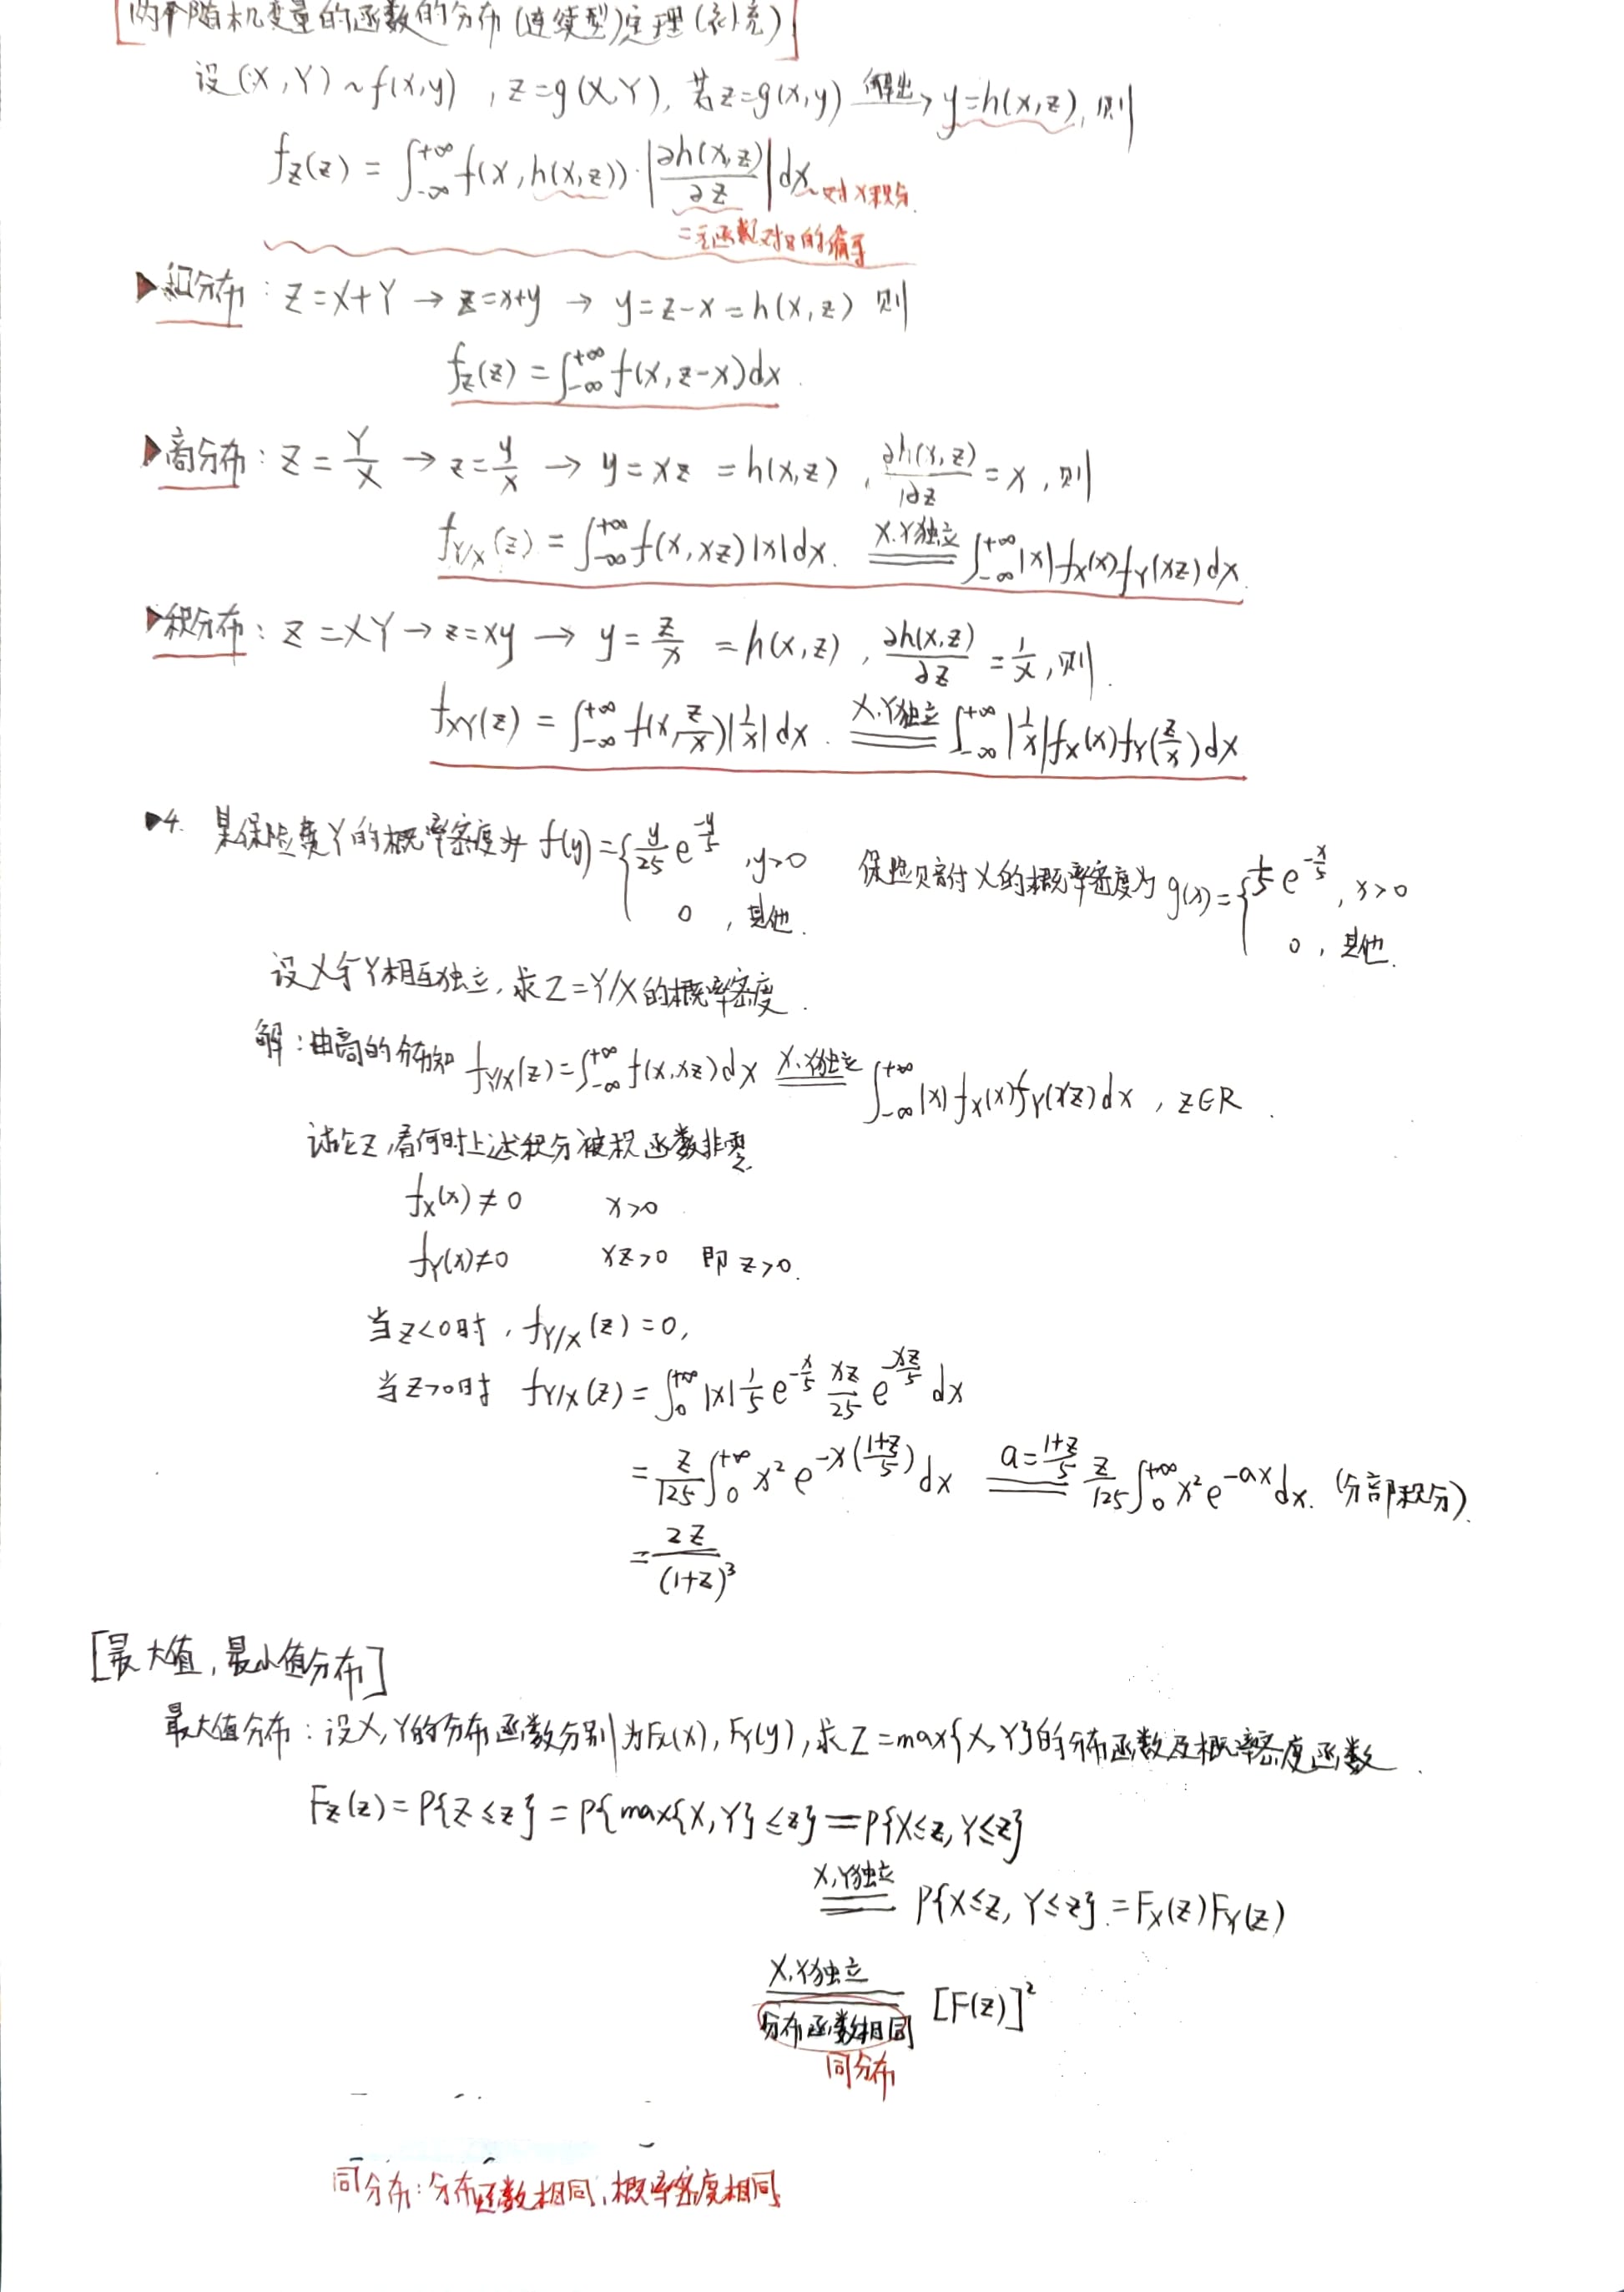 [两个随机变量的函数的分布(连续型)定理(补充)]
设(X,Y)~f(x,y) , Z=g(X,Y), 若z=g(x,y) 解出→ y=h(x,z), 则
f_Z(z) = ∫_{-∞}^{+∞} f(x,h(x,z))·|∂h(x,z)/∂z| dx ~对x积分.
=元函数对z的偏导
▶和分布: Z=X+Y → z=x+y → y=z-x=h(x,z) 则
f_Z(z) = ∫_{-∞}^{+∞} f(x,z-x)dx.
▶商分布: Z=Y/X → z=y/x → y=xz =h(x,z) , ∂h(x,z)/∂z = x , 则
f_{Y/X}(z) = ∫_{-∞}^{+∞} f(x,xz)|x|dx. X.Y独立 ═ ∫_{-∞}^{+∞} |x|f_X(x)f_Y(xz)dx.
▶积分布: Z=XY → z=xy → y=z/x =h(x,z) , ∂h(x,z)/∂z = 1/x , 则.
f_{XY}(z) = ∫_{-∞}^{+∞} f(x,z/x)|1/x|dx. X.Y独立 ═ ∫_{-∞}^{+∞} |1/x|f_X(x)f_Y(z/x)dx
▶4. 某保险费Y的概率密度为 f(y)={ y/25 e^{-y/5} , y>0 保险赔付X的概率密度为 g(x)={ 1/5 e^{-x/5}, x>0
0 , 其他. 0 , 其他.
设X与Y相互独立, 求Z=Y/X的概率密度.
解:由商的分布知 f_{Y/X}(z)=∫_{-∞}^{+∞} f(x,xz)dx X.Y独立 ═ ∫_{-∞}^{+∞} |x| f_X(x)f_Y(xz)dx , z∈R .
讨论z,看何时上述积分被积函数非零.
f_X(x)≠0 x>0
f_Y(x)≠0 xz>0 即z>0.
当z<0时, f_{Y/X}(z)=0,
当z>0时 f_{Y/X}(z) = ∫_0^{+∞} |x| 1/5 e^{-x/5} xz/25 e^{-xz/5} dx
= z/125 ∫_0^{+∞} x² e^{-x((1+z)/5)} dx a=(1+z)/5 ═ z/125 ∫_0^{+∞} x² e^{-ax} dx. (分部积分).
= 2z/(1+z)³
[最大值, 最小值分布]
最大值分布: 设X,Y的分布函数分别为F_X(x), F_Y(y), 求Z=max{X,Y}的分布函数及概率密度函数.
F_Z(z) = P{Z≤z} = P{max{X,Y}≤z} = P{X≤z,Y≤z}
X,Y独立 ═ P{X≤z, Y≤z}. = F_X(z)F_Y(z)
X.Y独立
═ [F(z)]²
分布函数相同
同分布
同分布: 分布函数相同, 概率密度相同.